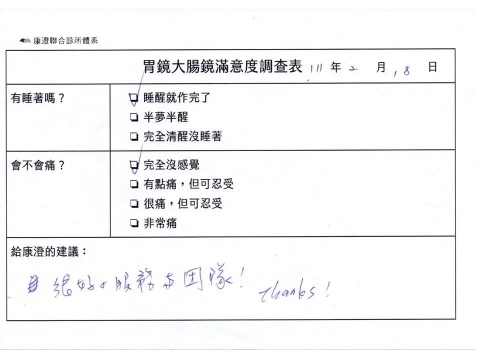 康澄聯合診所體系
胃鏡大腸鏡滿意度調查表 111 年 2 月 18 日
有睡著嗎？
睡醒就作完了
半夢半醒
完全清醒沒睡著
會不會痛？
完全沒感覺
有點痛，但可忍受
很痛，但可忍受
非常痛
給康澄的建議：
很好的服務 團隊！ thanks！